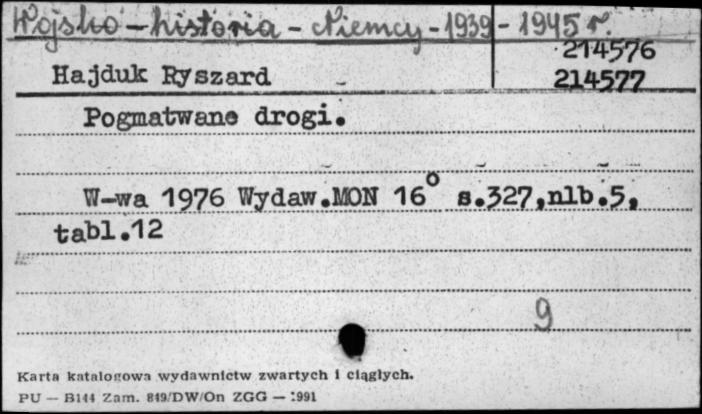 Wojsko - historia - Niemcy - 1939 - 1945 r.
214576
Hajduk Ryszard
214577
Pogmatwane drogi.
W-wa 1976 Wydaw.MON 16° s.327,nlb.5,
tabl.12
9
Karta katalogowa wydawnictw zwartych i ciągłych.
PU — B144 Zam. 849/DW/On ZGG — 1991